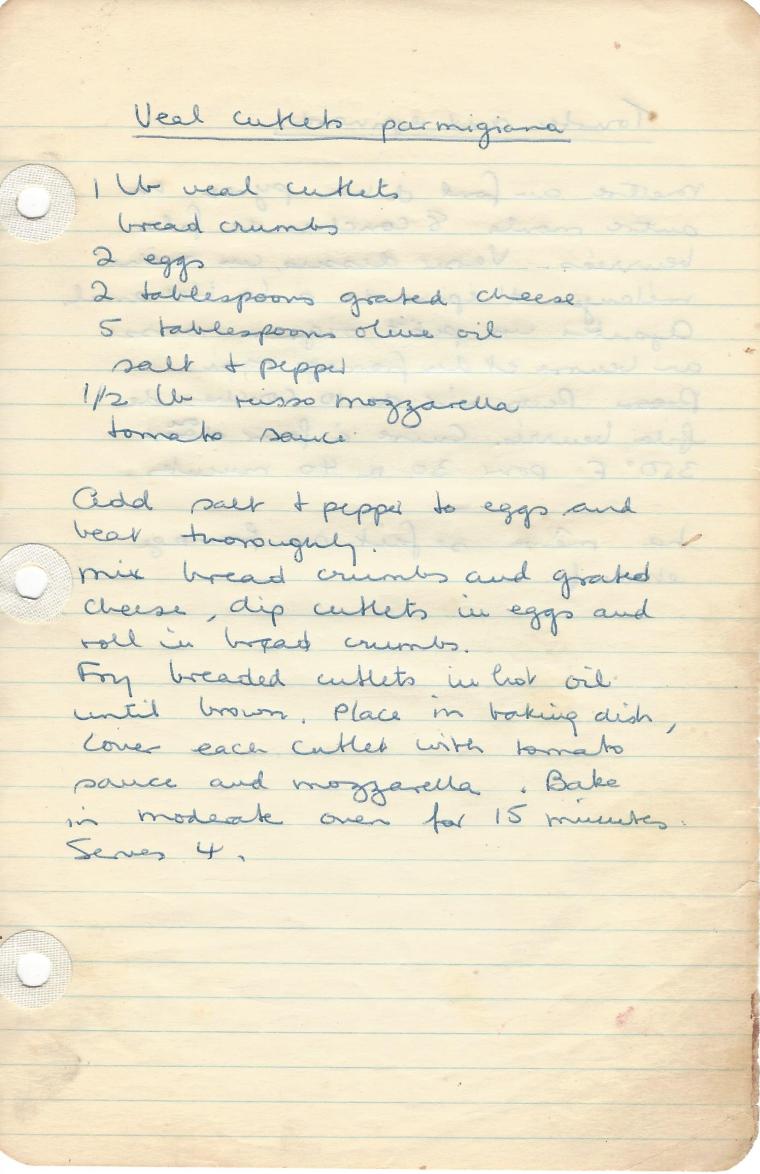 Veal cutlets parmigiana
1 lb veal cutlets
bread crumbs
2 eggs
2 tablespoons grated cheese
5 tablespoons olive oil
salt + pepper
1/2 lb russo mozzarella
tomato sauce
Add salt + pepper to eggs and
beat thoroughly.
mix bread crumbs and grated
cheese, dip cutlets in eggs and
roll in bread crumbs.
Fry breaded cutlets in hot oil
until brown. Place in baking dish,
cover each cutlet with tomato
sauce and mozzarella. Bake
in moderate oven for 15 minutes.
Serves 4.